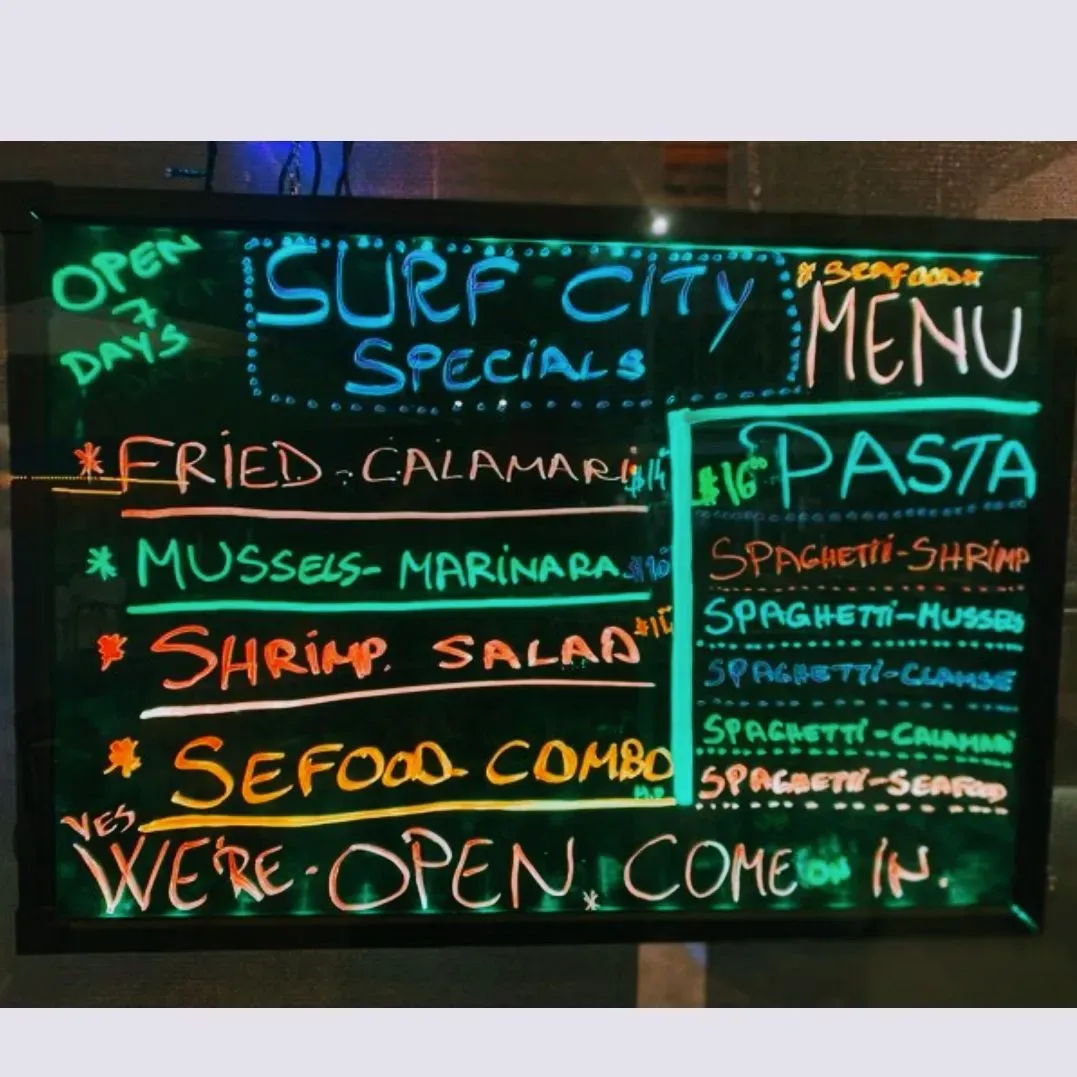 OPEN
7
DAYS
SURF CITY
SPECIALS
* SEAFOOD *
MENU
* FRIED - CALAMARI
* MUSSELS - MARINARA
* SHRIMP. SALAD
* SEFOOD - COMBO
$16⁰⁰ PASTA
SPAGHETTI - SHRIMP
SPAGHETTI - MUSSELS
SPAGHETTI - CLAMSE
SPAGHETTI - CALAMARI
SPAGHETTI - SEAFOOD
YES
WE'RE - OPEN * COME ON IN.